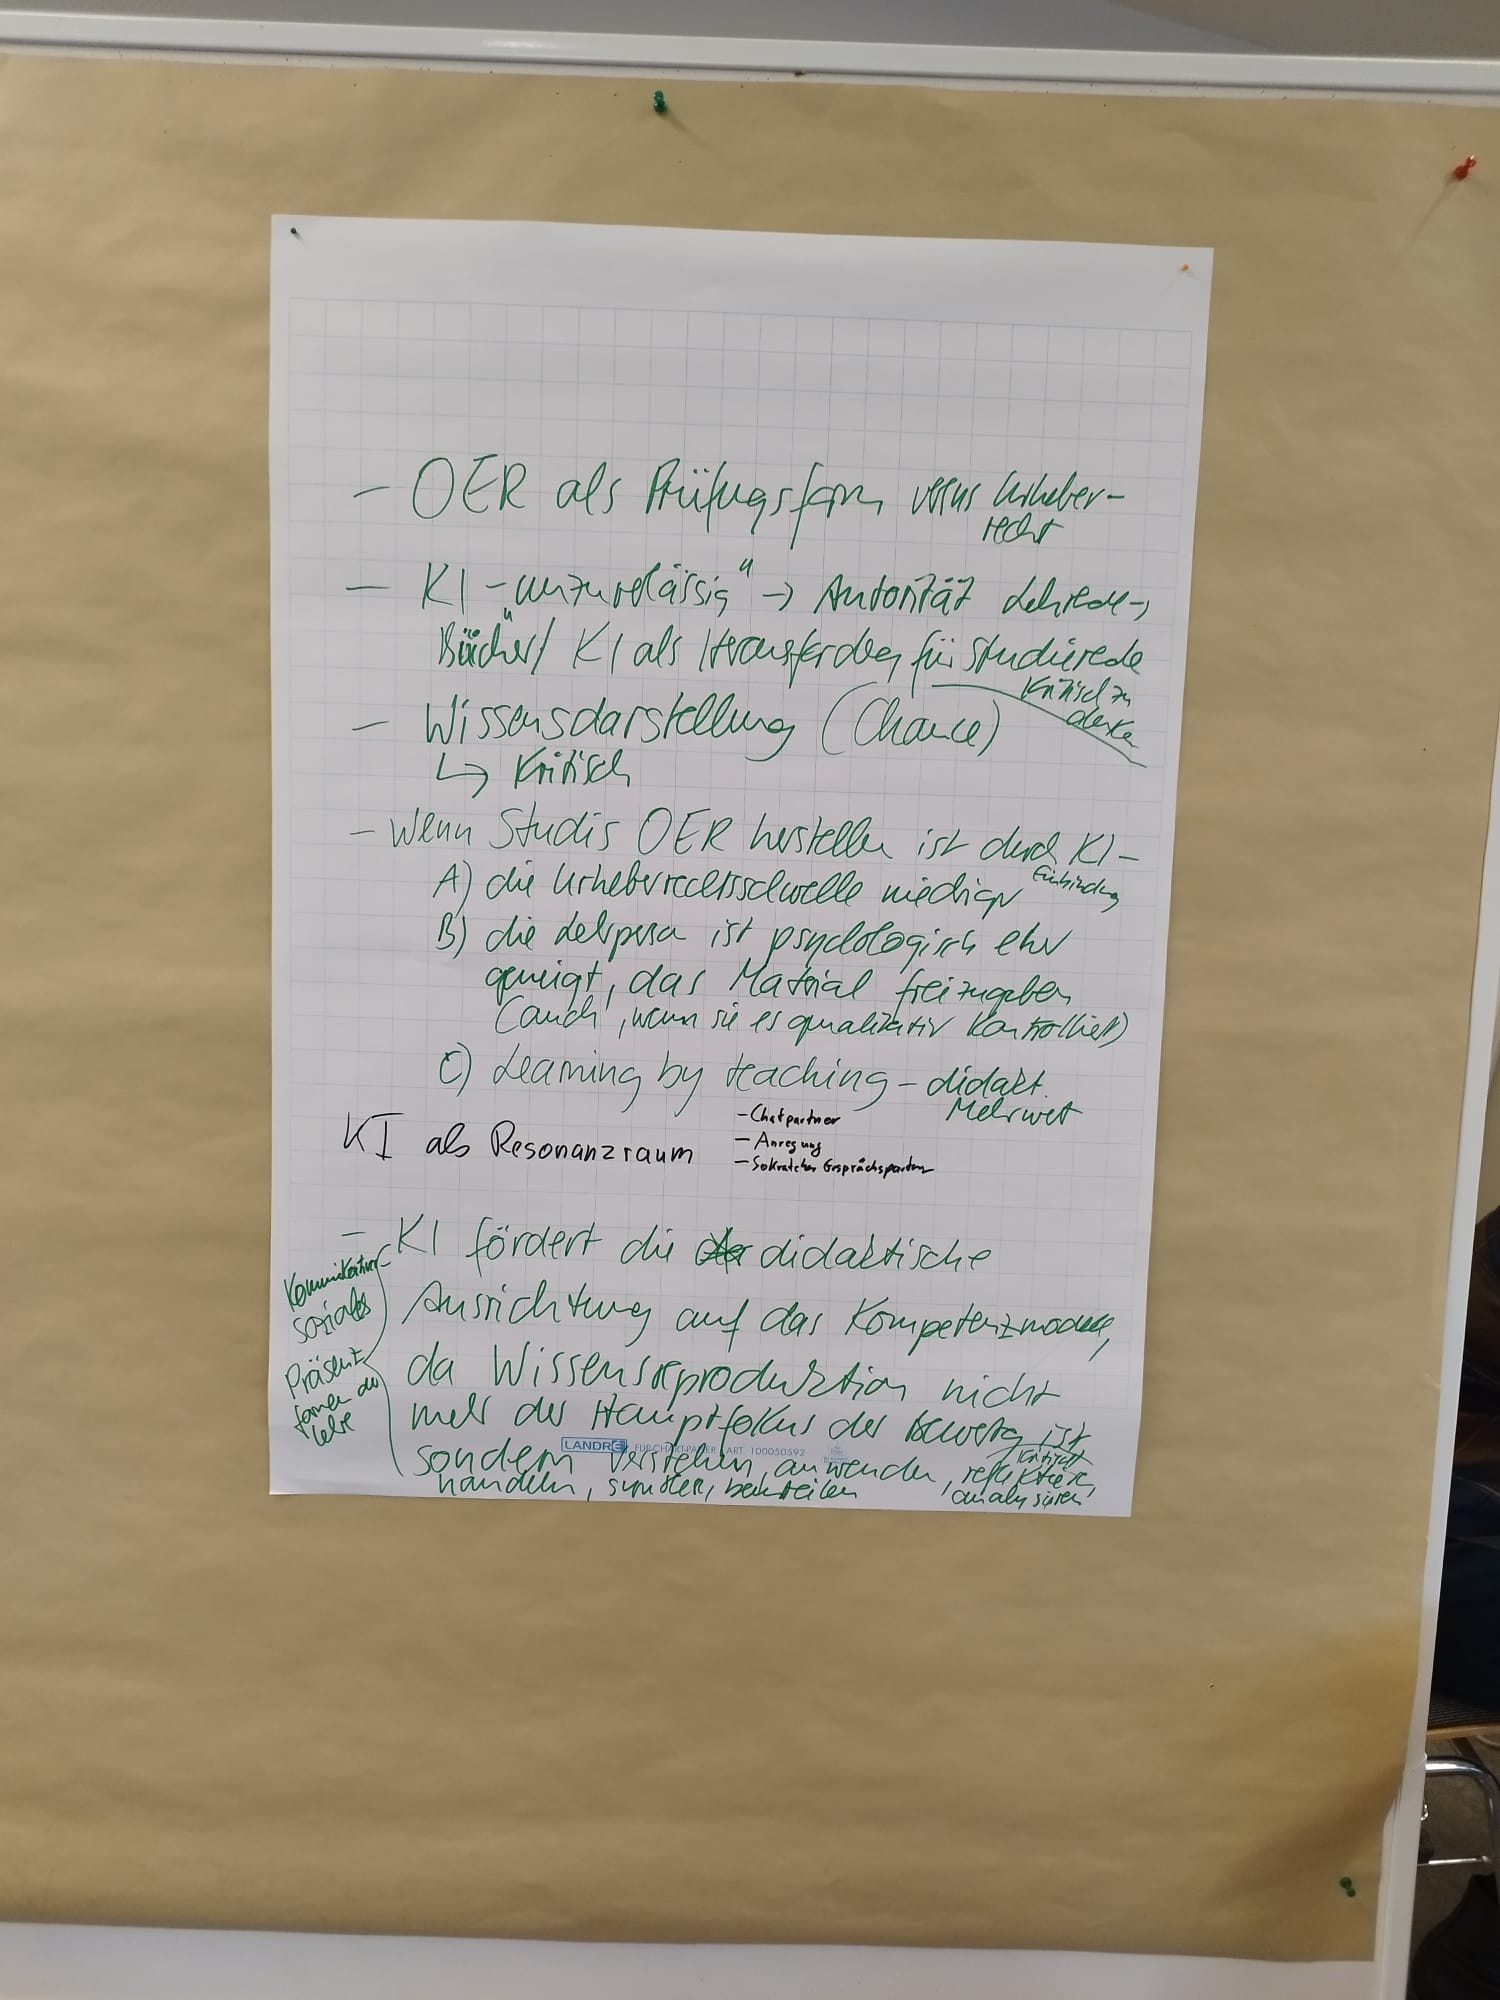 - OER als Prüfungsform versus Urheber-
recht
- KI - "unzuverlässig" → Autorität Lehrende,
Bücher / KI als Herausforderung für Studierende
kritisch zu
denken
- Wissensdarstellung (Chance)
↳ kritisch
- Wenn Studis OER herstellen ist durch KI-
Einbindung
A) die Urheberrechtsschwelle niedriger
B) die Lehrperson ist psychologisch eher
geneigt, das Material freizugeben
(auch, wenn sie es qualitativ kontrolliert)
C) Learning by teaching - didakt.
Mehrwert
KI als Resonanzraum
- Chatpartner
- Anregung
- Sokratischer Gesprächspartner
- KI fördert die didaktische
Ausrichtung auf das Kompetenzmodell,
da Wissensreproduktion nicht
mehr der Hauptfokus der Bewertung ist
sondern verstehen, anwenden, kritisch reflektieren,
handeln, beurteilen analysieren
soziales
Präsenz-
formen der
Lehre
LANDRÉ FLIPCHART-PAPIER ART. 100050592